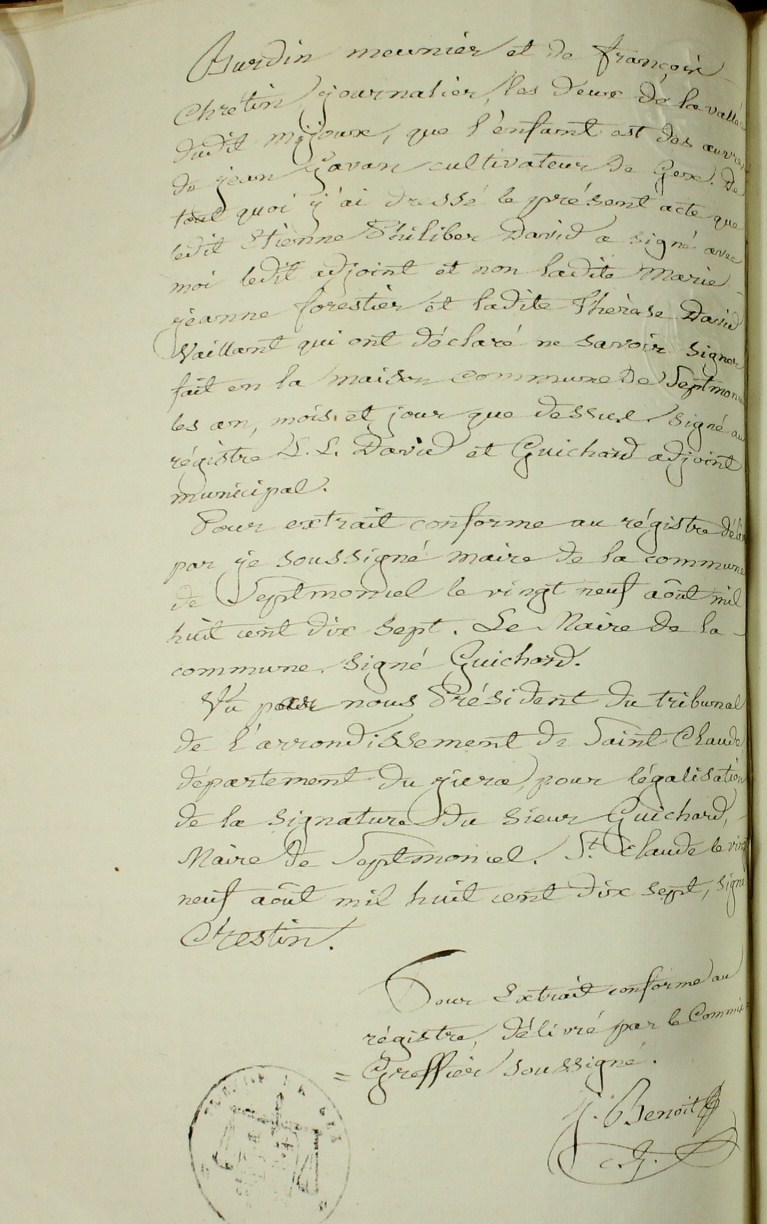 Burdin meunier et de françois
Chrétin journalier, les deux de la vallée
dudit mijoux, que l'enfant est des œuvres
de jean Gavan cultivateur de Gex. De
tout quoi j'ai dressé le présent acte que
ledit Etienne Philiber David a signé avec
moi ledit adjoint et non ladite Marie
jeanne forestier et ladite Thérèse David
Vaillant qui ont déclaré ne savoir signer
fait en la maison commune de Septmoncel
les an, mois et jour que dessus. signé au
régistre E. L. David et Guichard adjoint
municipal.
Pour extrait conforme au régistre délivré
par je soussigné maire de la commune
de Septmoncel le vingt neuf août mil
huit cent dix sept. Le Maire de la
commune. signé Guichard.
Vu par nous Président du tribunal
de l'arrondissement de Saint Claude
département du jura, pour légalisation
de la signature du sieur Guichard,
Maire de Septmoncel. St. Claude le vingt
neuf août mil huit cent dix sept, signé
Crestin.
Pour Extrait conforme au
régistre, délivré par le Commis
= Greffier soussigné.
J. Benoit
c. G.